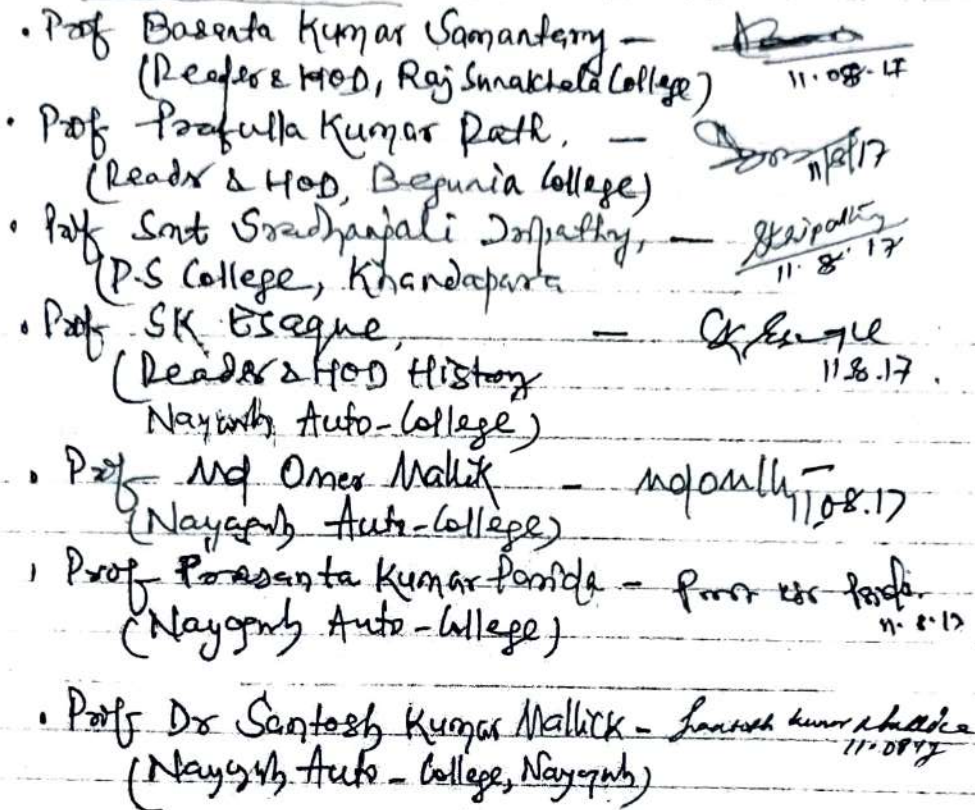 . Prof Basanta Kumar Samantaray -
(Reader & HOD, Raj Sunakhela College) 11.08.17
. Prof Prafulla Kumar Rath, - 11/8/17
(Reader & HOD, Begunia College)
. Prof Smt Sradhanjali Tripathy, - STripathy
(P.S College, Khandapara 11.8.17
. Prof SK Esaque, - SK Esaque
(Reader & HOD History 11.8.17.
Nayagarh Auto-College)
. Prof Md Omer Mallik - 11.08.17
(Nayagarh Auto-College)
. Prof Prasanta Kumar Parida -
(Nayagarh Auto-College) 11.8.17
. Prof Dr Santosh Kumar Mallick - Santosh kumar Mallick
(Nayagarh Auto-College, Nayagarh) 11.08.17